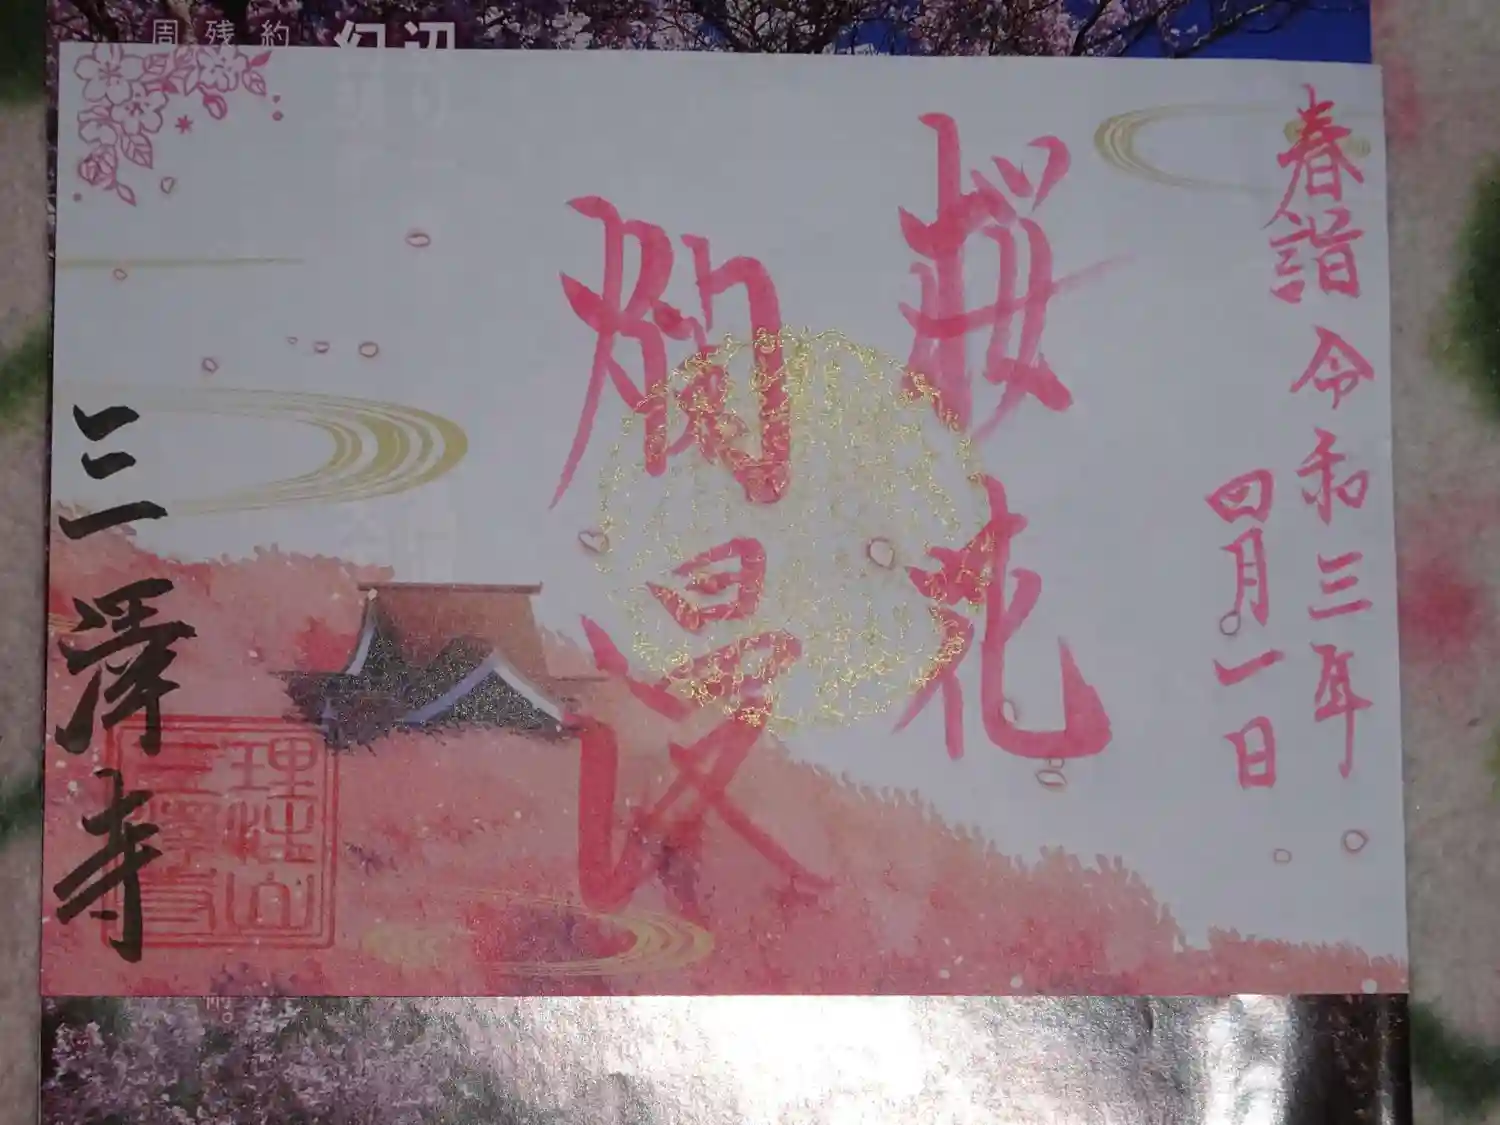 春詣 令和三年
四月一日
桜花
爛漫
三澤寺
理性山
三澤寺
約
残
周